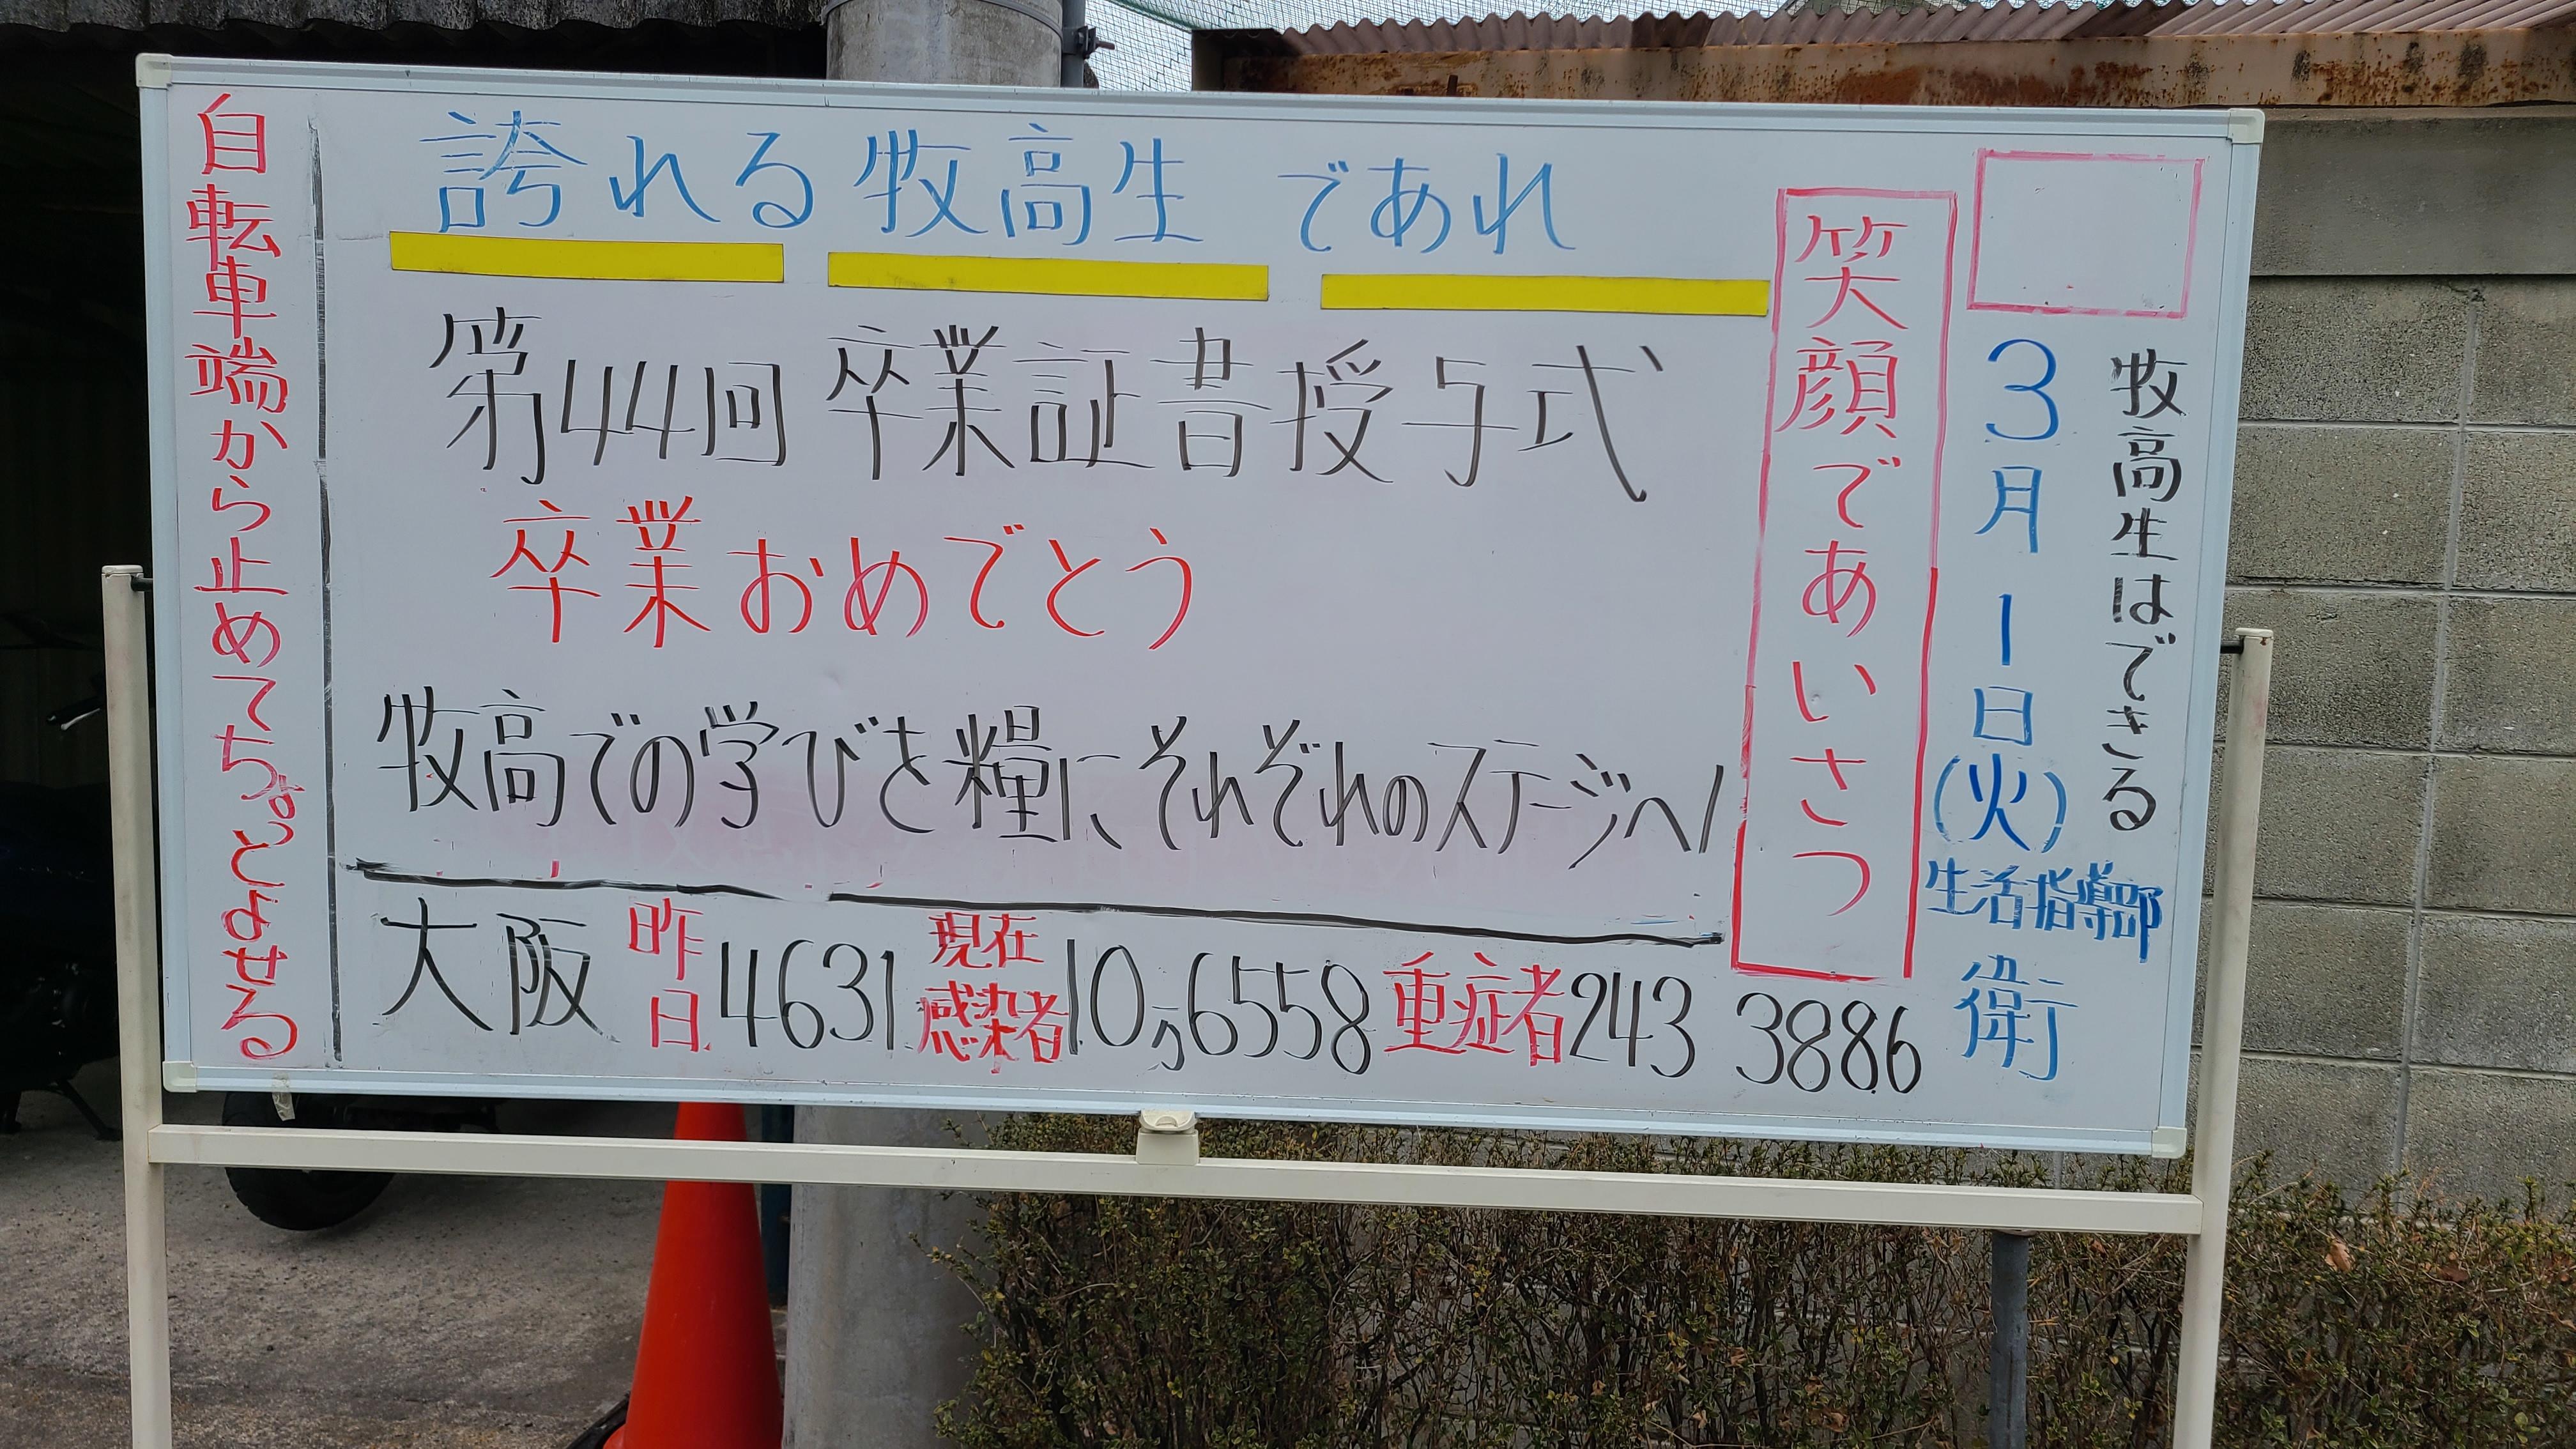 誇れる牧高生であれ
第44回 卒業証書授与式
卒業おめでとう
牧高での学びを糧にそれぞれのステージへ!
大阪 昨日 4631 現在感染者 10万6558 重症者 243 3886
笑顔であいさつ
3月1日(火)
生活指導部
衛
牧高生はできる
自転車端から止めてちょっとよせる